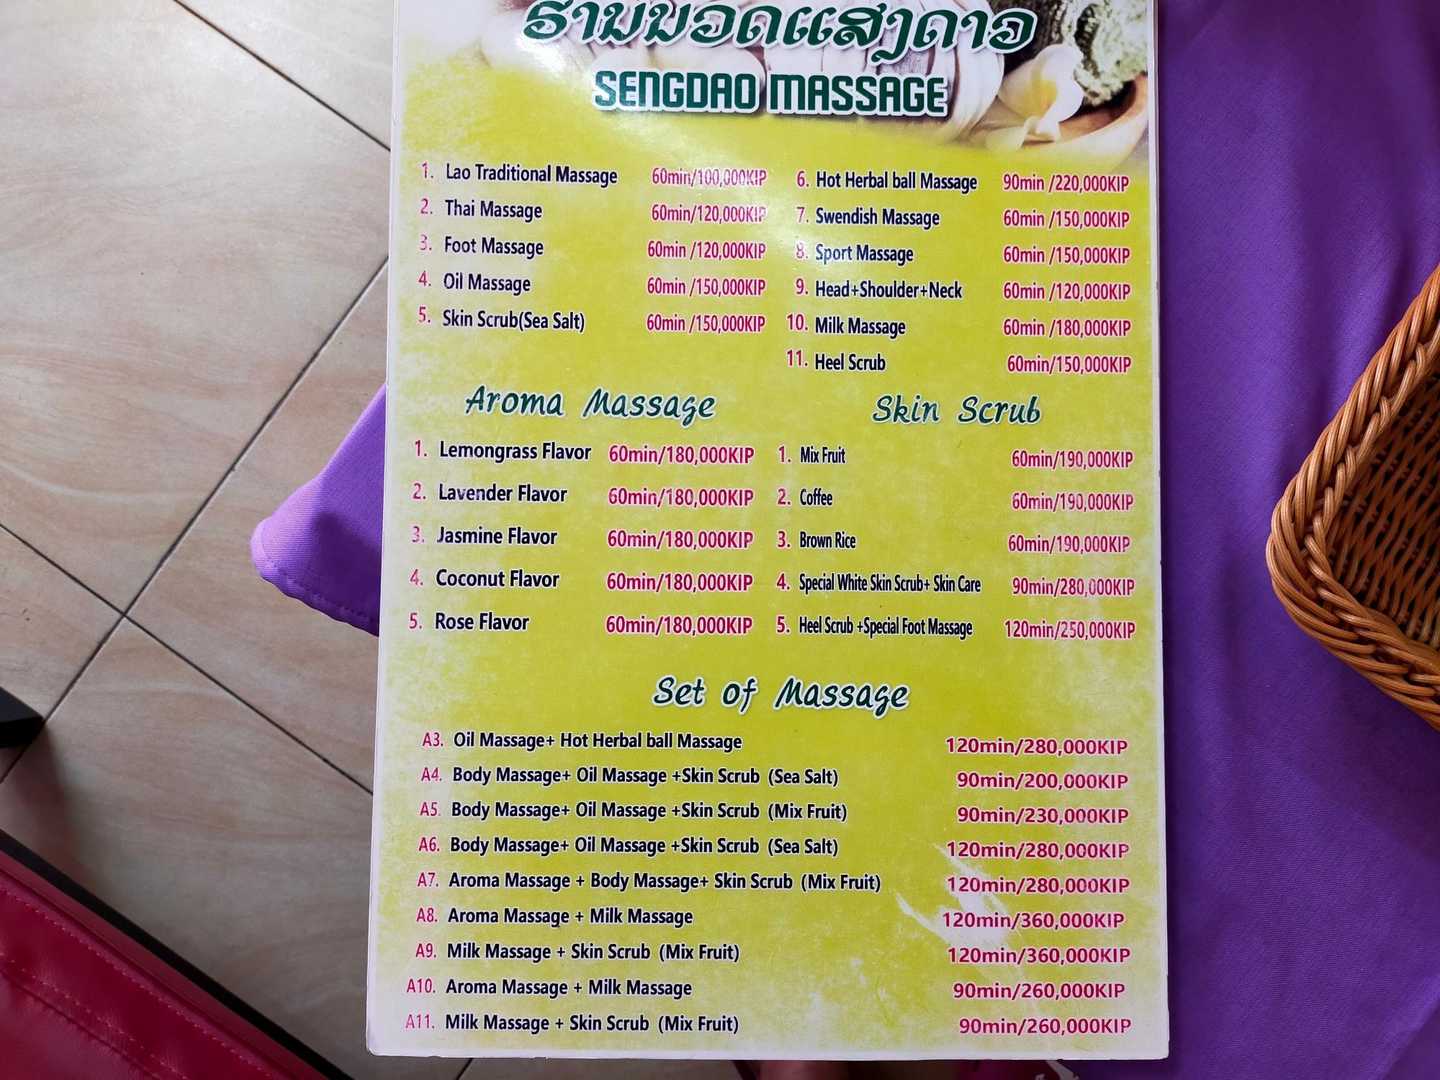 ຮ້ານນວດແສງດາວ
SENGDAO MASSAGE
1. Lao Traditional Massage 60min/100,000KIP
2. Thai Massage 60min/120,000KIP
3. Foot Massage 60min /120,000KIP
4. Oil Massage 60min /150,000KIP
5. Skin Scrub(Sea Salt) 60min /150,000KIP
6. Hot Herbal ball Massage 90min /220,000KIP
7. Swendish Massage 60min /150,000KIP
8. Sport Massage 60min /150,000KIP
9. Head+Shoulder+Neck 60min /120,000KIP
10. Milk Massage 60min /180,000KIP
11. Heel Scrub 60min/150,000KIP
Aroma Massage
1. Lemongrass Flavor 60min/180,000KIP
2. Lavender Flavor 60min/180,000KIP
3. Jasmine Flavor 60min/180,000KIP
4. Coconut Flavor 60min/180,000KIP
5. Rose Flavor 60min/180,000KIP
Skin Scrub
1. Mix Fruit 60min/190,000KIP
2. Coffee 60min/190,000KIP
3. Brown Rice 60min/190,000KIP
4. Special White Skin Scrub+ Skin Care 90min/280,000KIP
5. Heel Scrub +Special Foot Massage 120min/250,000KIP
Set of Massage
A3. Oil Massage+ Hot Herbal ball Massage 120min/280,000KIP
A4. Body Massage+ Oil Massage +Skin Scrub (Sea Salt) 90min/200,000KIP
A5. Body Massage+ Oil Massage +Skin Scrub (Mix Fruit) 90min/230,000KIP
A6. Body Massage+ Oil Massage +Skin Scrub (Sea Salt) 120min/280,000KIP
A7. Aroma Massage + Body Massage+ Skin Scrub (Mix Fruit) 120min/280,000KIP
A8. Aroma Massage + Milk Massage 120min/360,000KIP
A9. Milk Massage + Skin Scrub (Mix Fruit) 120min/360,000KIP
A10. Aroma Massage + Milk Massage 90min/260,000KIP
A11. Milk Massage + Skin Scrub (Mix Fruit) 90min/260,000KIP